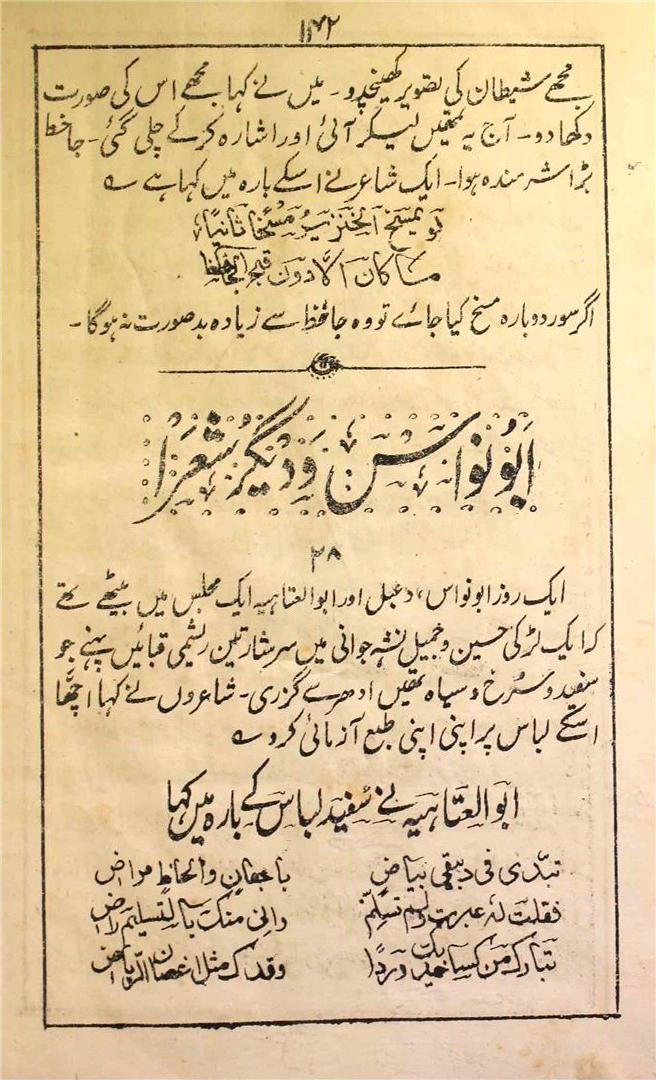 ۱۴۲
مجھے شیطان کی تصویر کھینچدو۔ میں نے کہا مجھے اس کی صورت
دکھا دو۔ آج یہ تمھیں لیکر آئی اور اشارہ کر کے چلی گئی۔ جاحظ
بڑا شرمندہ ہوا۔ ایک شاعر نے اسکے بارہ میں کہا ہے ؎
لو یمسخ الخنزیر مسخا ثانیا
ما کان الا دون قبح الجاحظ
اگر سور دوبارہ مسخ کیا جائے تو وہ جاحظ سے زیادہ بدصورت نہ ہوگا۔
ابو نواس و دیگر شعرا
۲۸
ایک روز ابونواس، دعبل اور ابوالعتاہیہ ایک مجلس میں بیٹھے تھے
کہ ایک لڑکی حسین و جمیل نشہ جوانی میں سرشار تین ریشمی قبائیں پہنے جو
سفید و سرخ و سیاہ تھیں ادھر سے گزری۔ شاعروں نے کہا اچھا
اسکے لباس پر اپنی اپنی طبع آزمائی کرو ؎
ابوالعتاہیہ نے سفید لباس کے بارہ میں کہا
تبدی فی دبیقی بیاض باجفان والحاظ مراض
فقلت لہ عبرت ولم تسلم وانی منک بالتسلیم راض
تبارک من کسا خدیک وردا وقدک مثل اغصان الریاض